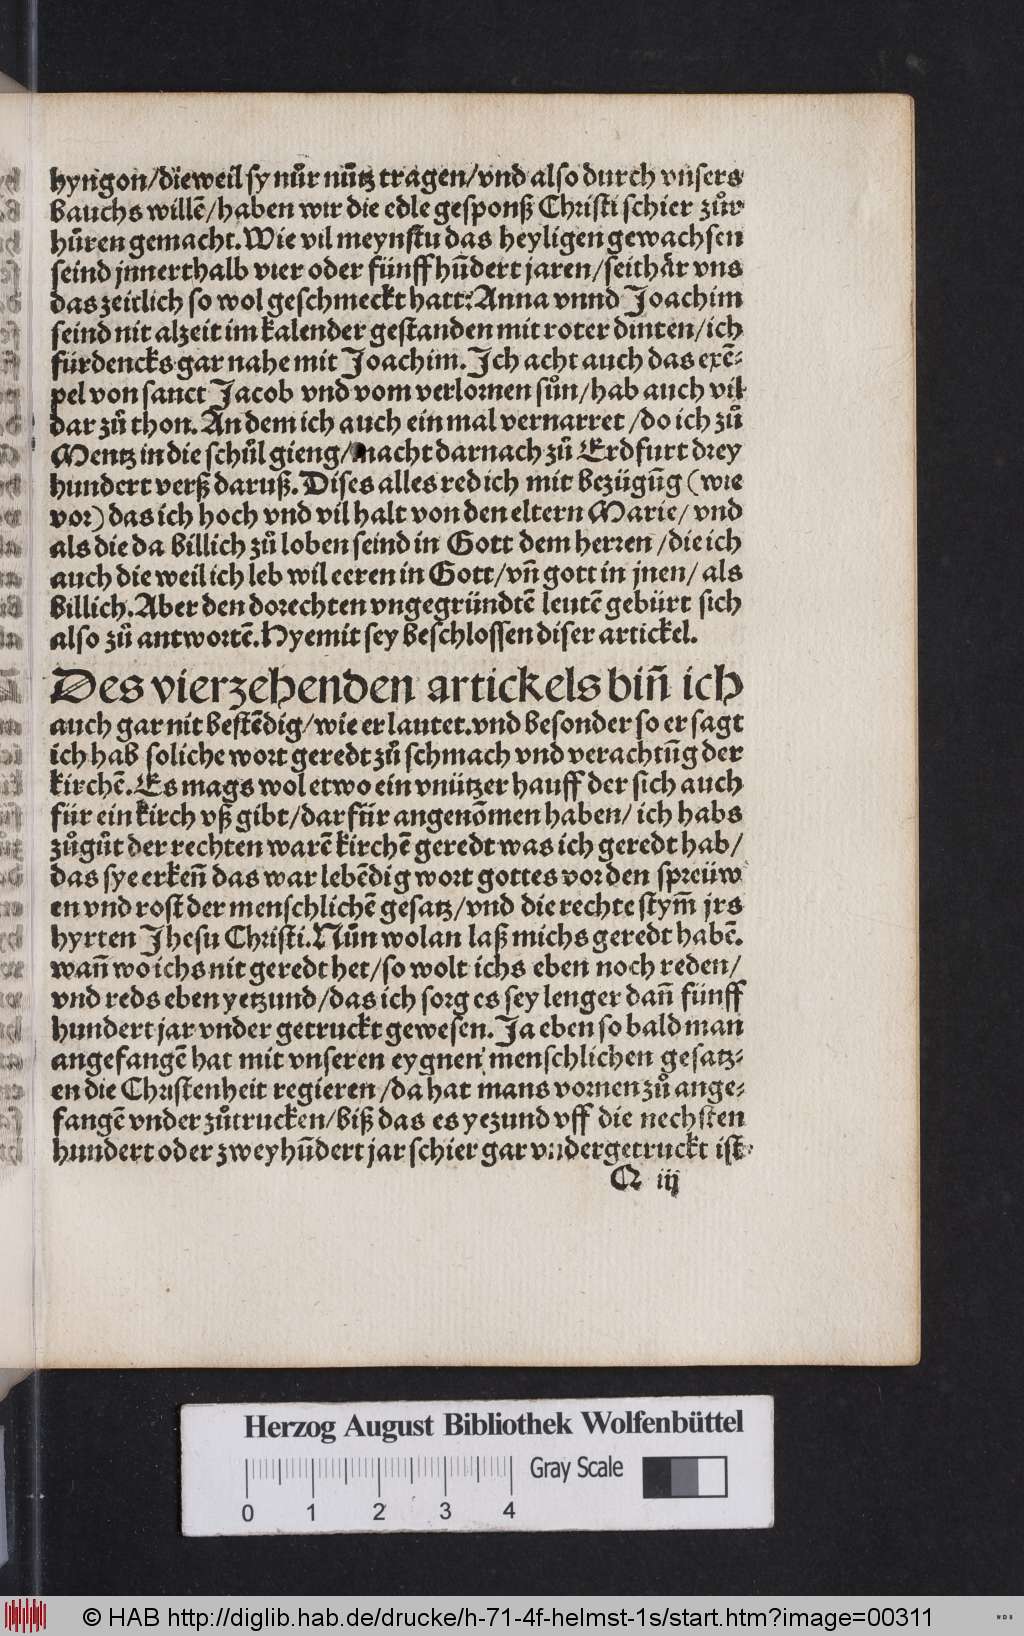 hyngon/dieweil sy nůr nůtz tragen/vnd also durch vnsers
bauchs willē/haben wir die edle gesponß Christi schier zůr
hůren gemacht. Wie vil meynstu das heyligen gewachsen
seind jnnerthalb vier oder fünff hūdert jaren/seithår vns
das zeitlich so wol geschmeckt hatt: Anna vnnd Joachim
seind nit alzeit im kalender gestanden mit roter dinten/ich
fürdencks gar nahe mit Joachim. Ich acht auch das exē-
pel von sanct Jacob vnd vom verlornen sůn/hab auch vil
dar zů thon. An dem ich auch ein mal vernarret/do ich zů
Mentz in die schůl gieng/macht darnach zů Erdfurt drey
hundert verß daruß. Dises alles red ich mit bezügūg (wie
vor) das ich hoch vnd vil halt von den eltern Marie/ vnd
als die da billich zů loben seind in Gott dem herren/die ich
auch die weil ich leb wil eeren in Gott/vñ gott in jnen/ als
billich. Aber den dorechten vngegründtē leutē gebürt sich
also zů antwortē. Hyemit sey beschlossen diser artickel.
Des vierzehenden artickels biñ ich
auch gar nit bestēdig/wie er lautet. vnd besonder so er sagt
ich hab soliche wort geredt zů schmach vnd verachtūg der
kirchē. Es mags wol etwo ein vnützer hauff der sich auch
für ein kirch vß gibt/dar für angenōmen haben/ ich habs
zůgůt der rechten warē kirchē geredt was ich geredt hab/
das sye erkeñ das war lebēdig wort gottes vor den spreüw
en vnd rost der menschlichē gesatz/vnd die rechte stym̄ jrs
hyrten Jhesu Christi. Nůn wolan laß michs geredt habē.
wañ wo ichs nit geredt het/so wolt ichs eben noch reden/
vnd reds eben yetzund/das ich sorg es sey lenger dañ fünff
hundert jar vnder getruckt gewesen. Ja eben so bald man
angefangē hat mit vnseren eygnen menschlichen gesatz-
en die Christenheit regieren/da hat mans vornen zů ange-
fangē vnder zůtrucken/biß das es yezund vff die nechsten
hundert oder zweyhūdert jar schier gar vndergetruckt ist.
Q iij
Herzog August Bibliothek Wolfenbüttel
Gray Scale
0 1 2 3 4
© HAB http://diglib.hab.de/drucke/h-71-4f-helmst-1s/start.htm?image=00311
WDB